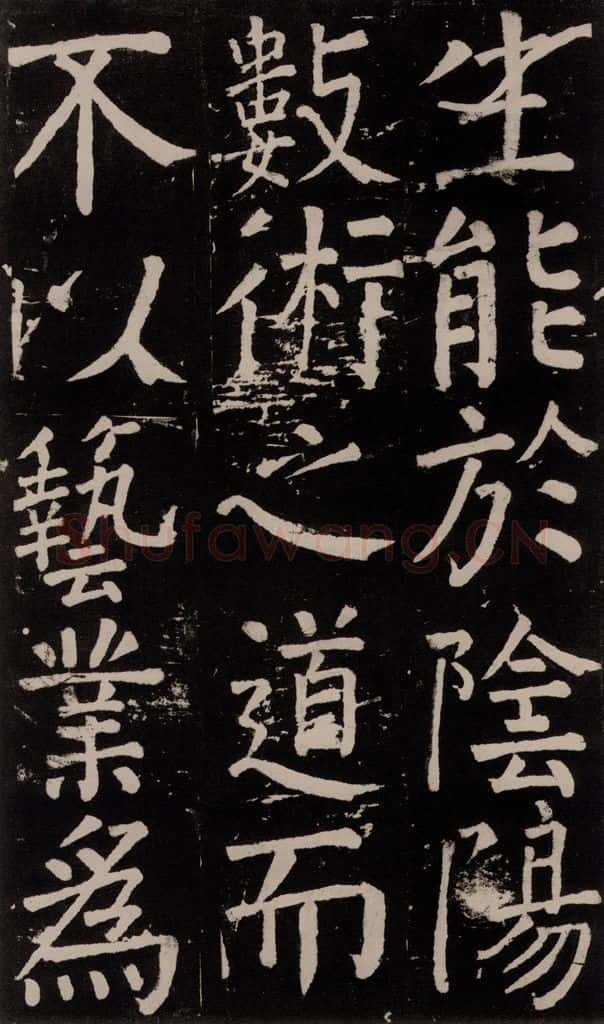 生能於陰陽
數術之道而
不以藝業為
Shufawang.CN